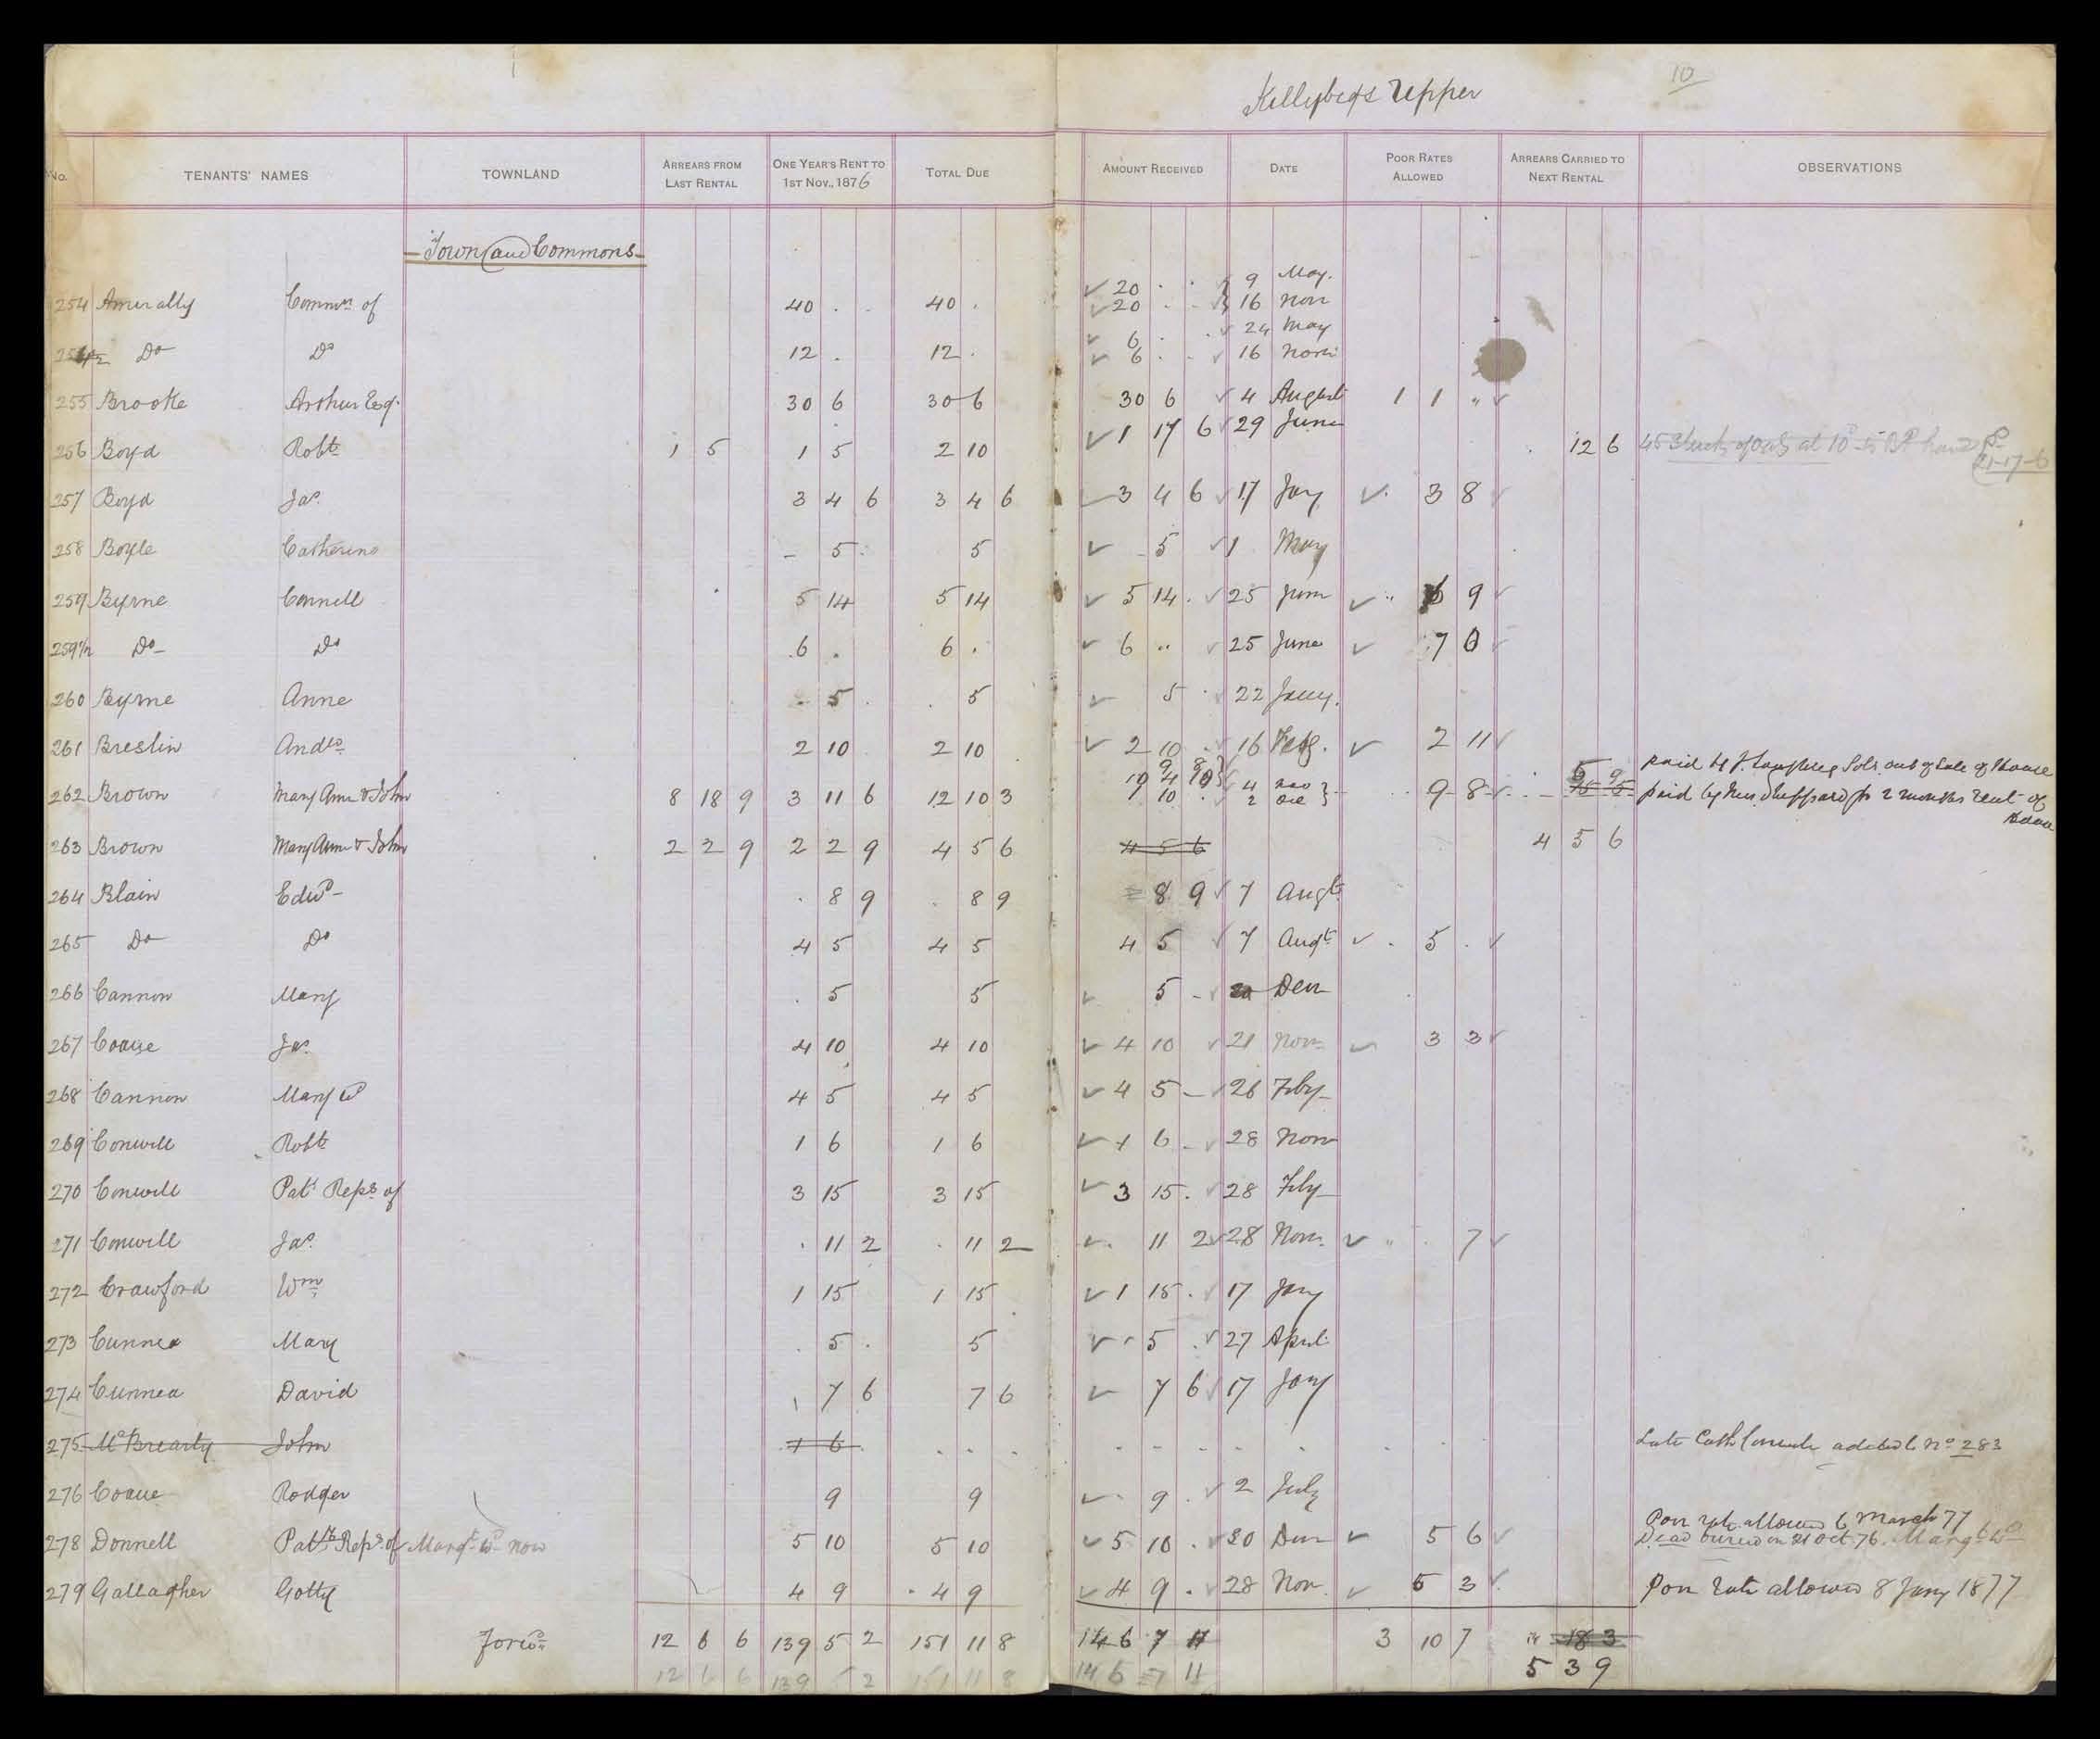 10
Killybegs Upper
No. TENANTS' NAMES TOWNLAND ARREARS FROM LAST RENTAL ONE YEAR'S RENT TO 1ST NOV., 1876 TOTAL DUE AMOUNT RECEIVED DATE POOR RATES ALLOWED ARREARS CARRIED TO NEXT RENTAL OBSERVATIONS
Town and Commons
254 Amirally Commrs of 40 . . 40 . 20 . . 9 May.
20 . . 16 Nov
Do Do 12 . 12 . 6 . 24 May
6 . . 16 Nov
255 Brooke Arthur Esq. 30 6 30 6 30 6 4 August 1 1 "
256 Boyd Robt 1 5 1 5 2 10 1 17 6 29 June 12 6 at 10 1-17-6
257 Boyd Jas 3 4 6 3 4 6 3 4 6 17 Jay 3 8
258 Boyle Catherine - 5 . 5 5 1 May
259 Byrne Connell 5 14 5 14 5 14 . 25 June 6 9
259½ Do Do 6 . 6 . 6 " 25 June 7 0
260 Byrne Anne 5 . 5 5 . 22 Jany.
261 Breslin Andw 2 10 2 10 2 10 . 16 Feby. 2 11
262 Brown Mary Ann & John 8 18 9 3 11 6 12 10 3 4 2 9 8 paid by out of sale of House
paid by Mrs Sheppard for 2 months rent of House
263 Brown Mary Ann & John 2 2 9 2 2 9 4 5 6 4 5 6 4 5 6
264 Blain Edwd . 8 9 . 8 9 8 9 7 Augt
265 Do Do 4 5 4 5 4 5 7 Augt 5 .
266 Cannon Mary . 5 5 5 - Decr
267 Coane Jas 4 10 4 10 4 10 21 Nov 3 3
268 Cannon Mary Wd 4 5 4 5 4 5 - 26 Feby
269 Conwill Robt 1 6 1 6 1 6 - 28 Nov
270 Conwill Patk Reps of 3 15 3 15 3 15 . 28 Feby
271 Conwill Jas . 11 2 . 11 2 11 2 28 Nov. 7
272 Crawford Wm 1 15 1 15 1 15 . 17 Jany
273 Cunnea Mary . 5 . 5 5 . 27 April
274 Cunnea David 7 6 7 6 7 6 17 Jany
275 McBrearty John 1 6 Late Cath added to No 283
276 Coane Rodger 9 9 9 . 2 July
Poor rate allowed 6 March 77
278 Donnell Patk Reps of Margt Wd now 5 10 5 10 5 10 . 30 Decr 5 6 Dead buried on 21 Oct 76. Margt Wd
279 Gallagher Gotty 4 9 4 9 4 9 . 28 Nov. 5 3 Poor rate allowed 8 Jany 1877
Forwd 12 6 6 139 5 2 151 11 8 146 7 11 3 10 7 18 3
12 6 6 139 5 2 151 11 8 146 7 11 5 3 9